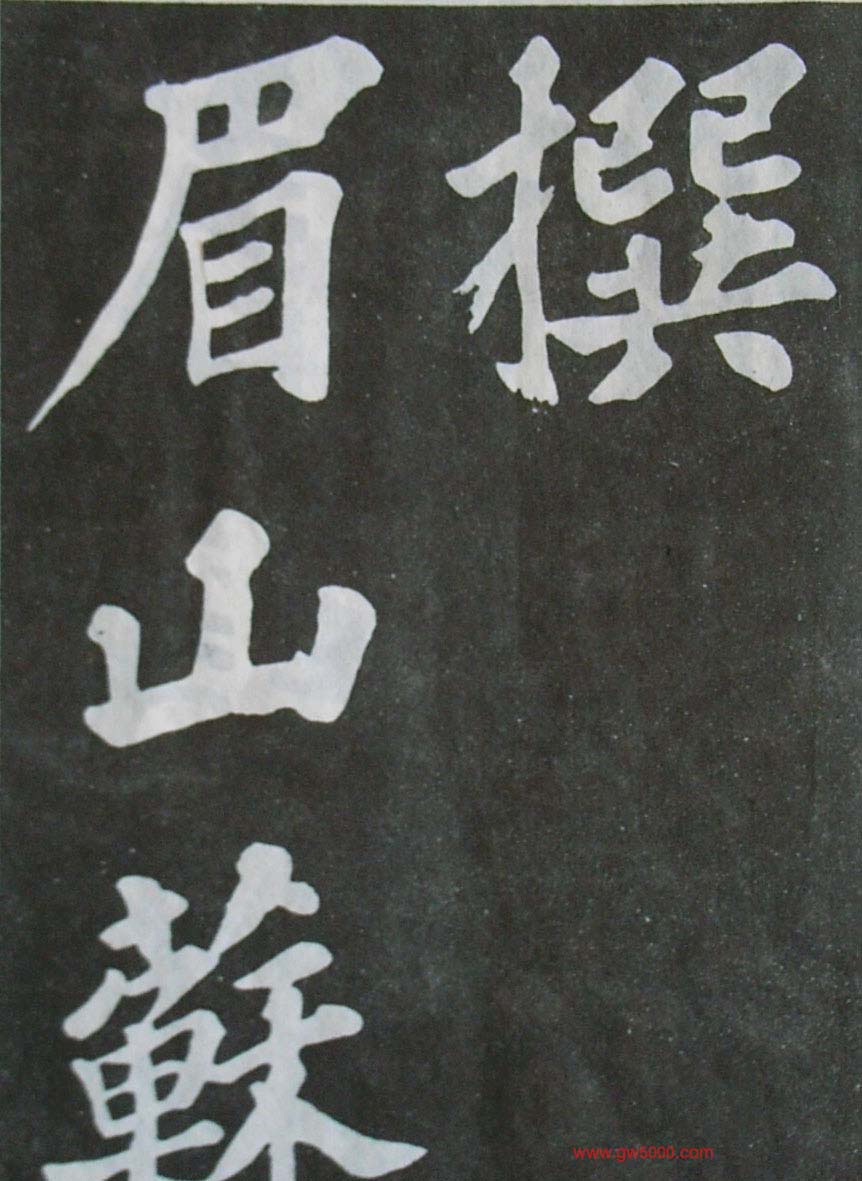 撰
眉山蘇
www.gw5000.com